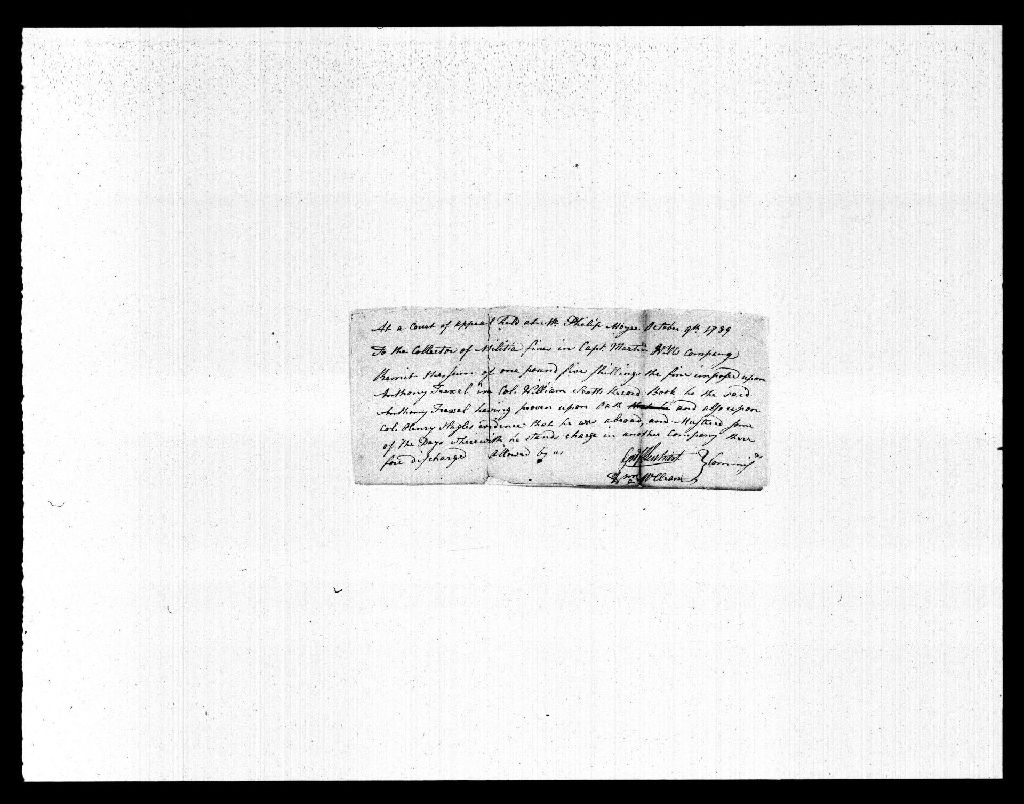 At a Court of appeal held at Mr. Philip Moyre October 9th 1789
To the Collector of Militia fines in Capt Martin Company
Remit the sum of one pound five shillings the fine imposed upon
Anthony Trexel in Col. William Scotts Record Book he the said
Anthony Trexel having proven upon Oath and also upon
Col. Henry Slagles evidence that he was abroad, and Mustered some
of the Days Therewith he stands charge in another Company there
fore discharged allowed by us
Commiss
Wm McClean